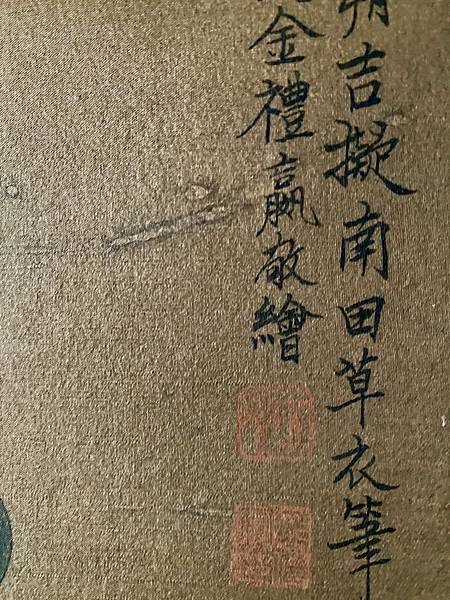 朔吉擬南田草衣筆
金禮嬴敬繪